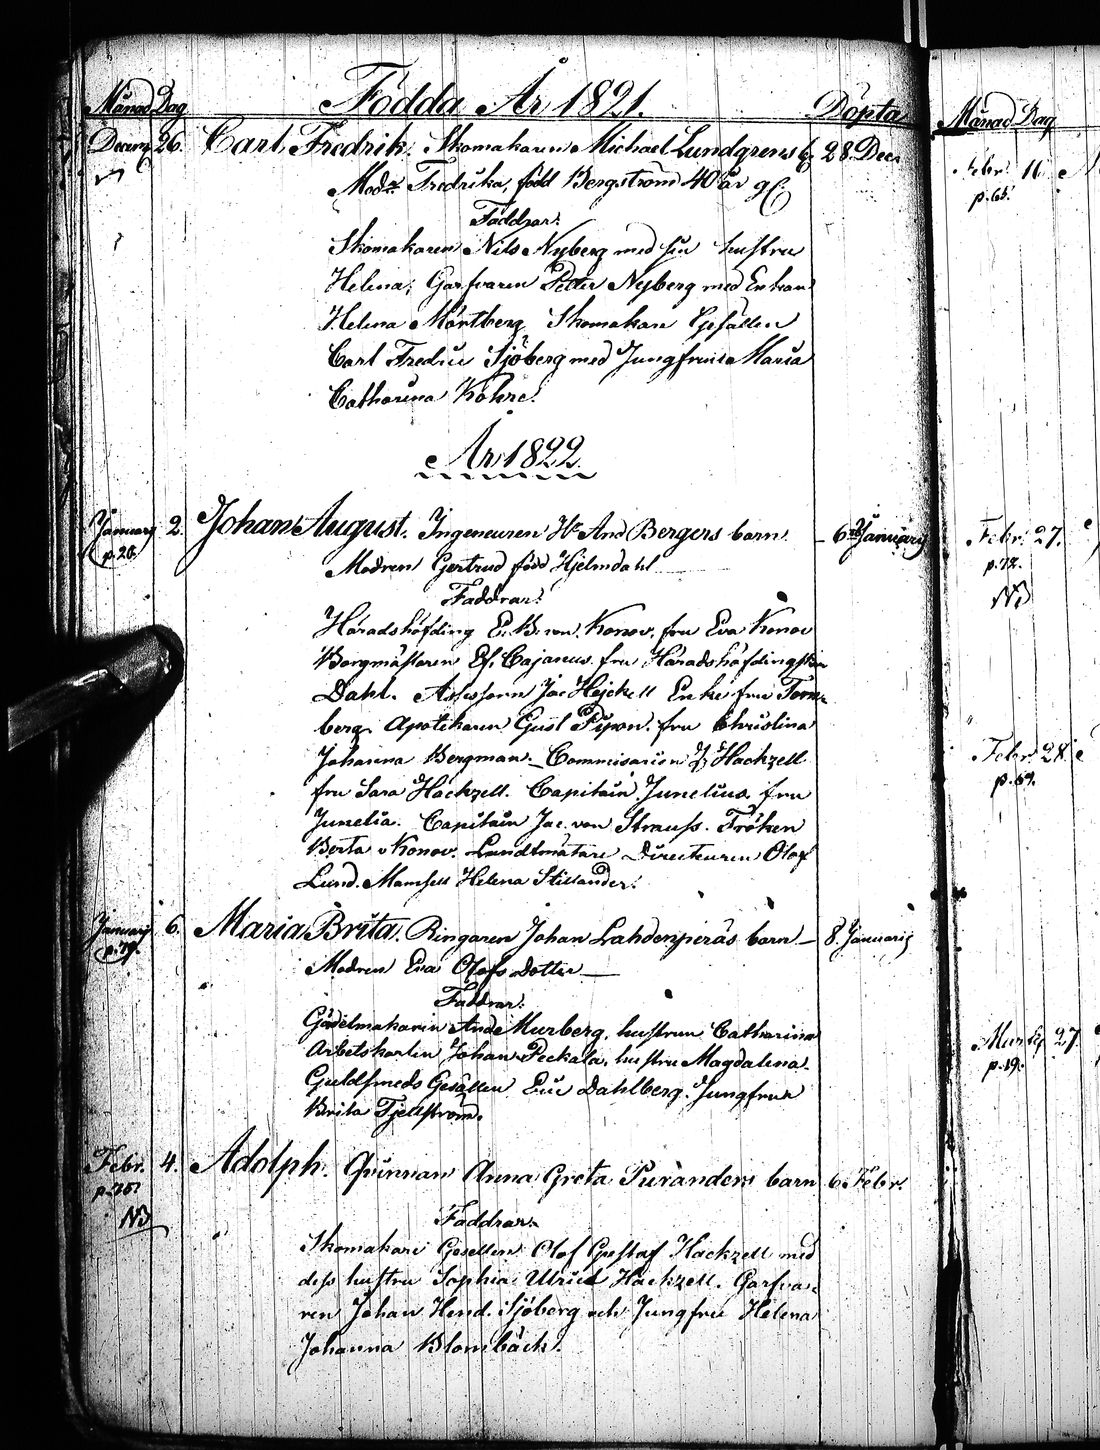 Månad Dag Födda År 1821. Döpta
Decemb. 26. Carl Fredrik. Skomakaren Michael Lundgrens b. 28 Dec.
Modr Fredrika, född Bergström 40 år
Faddrar:
Skomakaren Nils Nyberg med sin hustru
Helena, Garfvaren Petter Nyberg med Enkan
Helena Mörtberg Skomakare Gesällen
Carl Fredric Sjöberg med Jungfrun Maria
Catharina Kohre.
År 1822
January 2. Johan August. Ingeneuren Hr And Bergers barn 6 January
p. 26.
Modren Gertrud född Hjelmdahl
Faddrar:
Häradshöfding E. B. von Konov. fru Eva Konov
Borgmästaren Es. Cajanus fru Häradshöfdingskan
Dahl. Assessorn Jac Hejckell Enke fru Torn-
berg Apotekaren Gust Pipon. fru Christina
Johanna Bergman. Commisarien J. Hackzell
fru Sara Hackzell. Capitain Junelius fru
Junelia. Capitain Jac. von Strauss. Fröken
Berta v Konov. Landtmätare Directeuren Olof
Lund. Mamsell Helena Stillander.
January 6. Maria Brita. Ringaren Johan Lahdenperäs barn 8. Januarij
p. 79.
Modren Eva Olofs Dotter
Faddrar:
Gördelmakaren And Murberg, hustrun Catharina
Arbetskarlen Johan Peckala, hustru Magdalena.
Guldsmeds Gesällen Eric Dahlberg. Jungfrun
Brita Fjellström.
Febr. 4. Adolph. Qvinnan Anna Greta Puranders barn 6 Febr.
NB
Faddrar.
Skomakare Gesellen Olof Gustaf Hackzell med
dess hustru Sophia Ulrica Hackzell. Garfva-
ren Johan Hend. Sjöberg och Jungfru Helena
Johanna Blombäck.
Månad Dag
Febr. 11.
p. 65.
Febr. 27.
p. 72.
NB
Febr. 28.
p. 69.
Martij 27
p. 19.